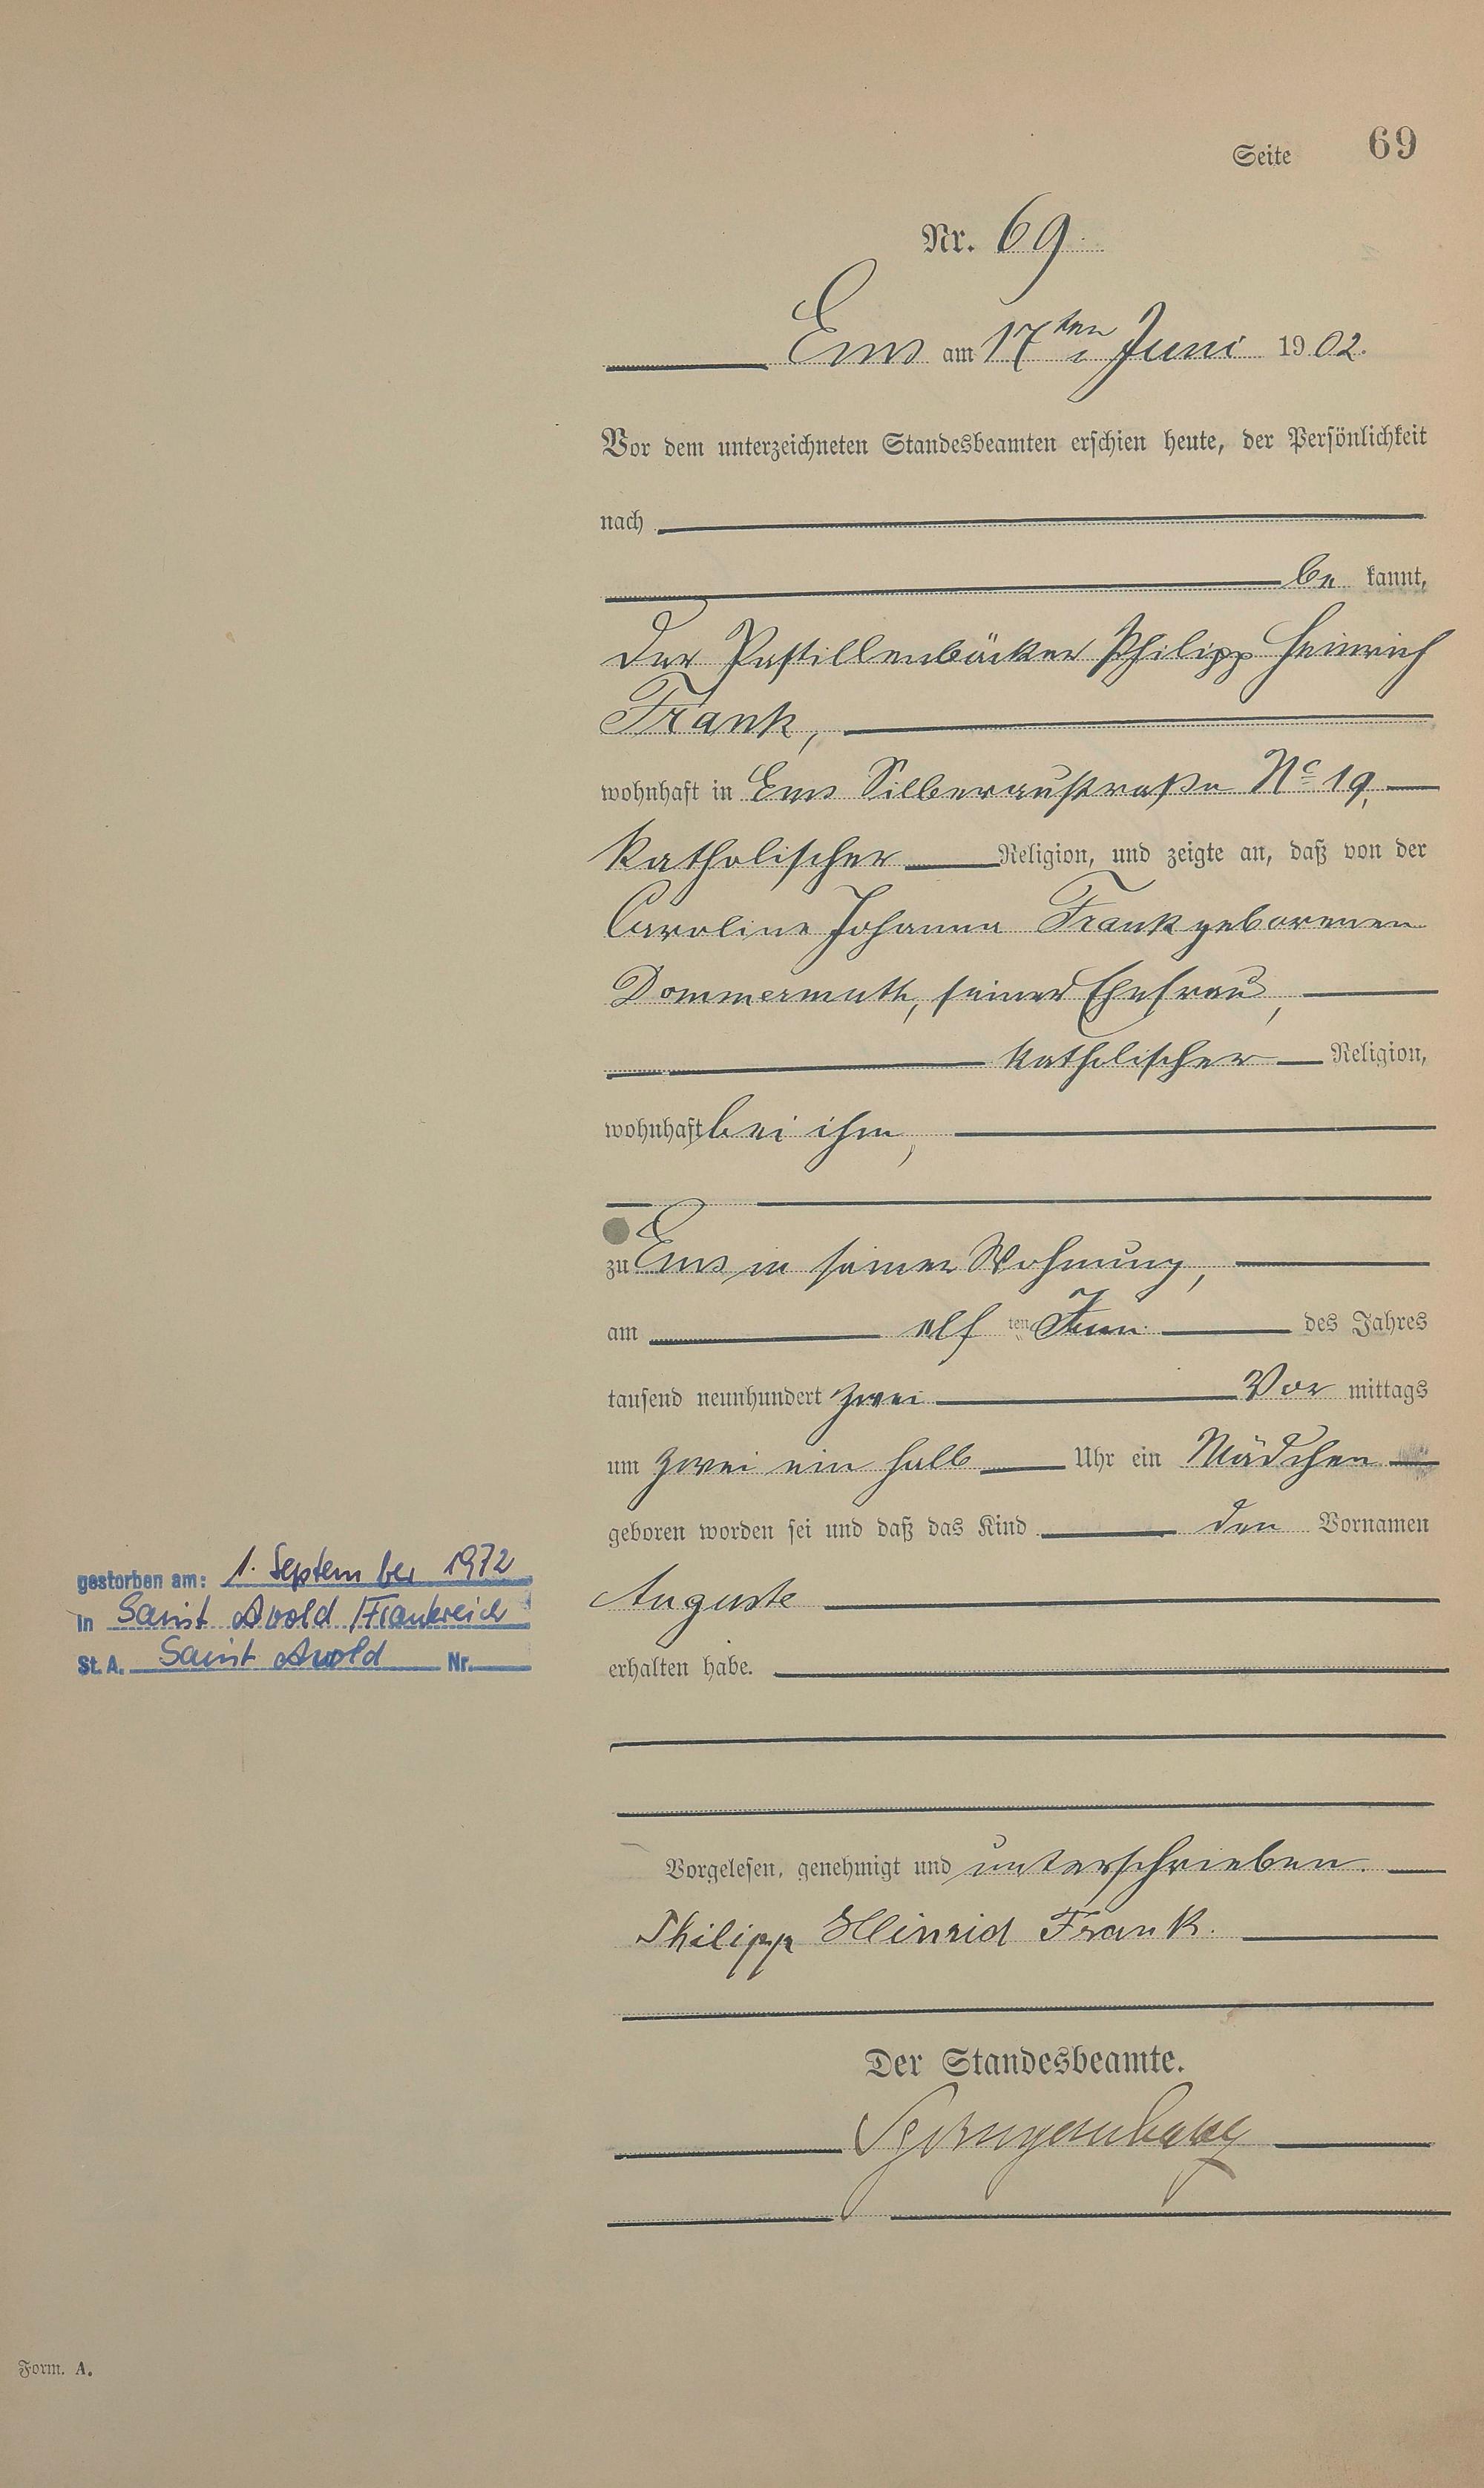 Seite 69
Nr. 69.
Ems am 17ten Juni 1902.
Vor dem unterzeichneten Standesbeamten erschien heute, der Persönlichkeit
nach
be kannt,
der Pastillenbäcker Philipp Heinrich
Frank,
wohnhaft in Ems Silberaustraße No 19,
katholischer Religion, und zeigte an, daß von der
Caroline Johanna Frank geborenen
Dommermuth, seiner Ehefrau,
katholischer Religion,
wohnhaft bei ihm,
zu Ems in seiner Wohnung,
am elf ten Juni des Jahres
tausend neunhundert zwei Vor mittags
um zwei ein halb Uhr ein Mädchen
geboren worden sei und daß das Kind den Vornamen
gestorben am: 1. September 1972
in Saint Avold /Frankreich
St. A. Saint Avold Nr.
Auguste
erhalten habe.
Vorgelesen, genehmigt und unterschrieben.
Philipp Heinrich Frank.
Der Standesbeamte.
Form. A.